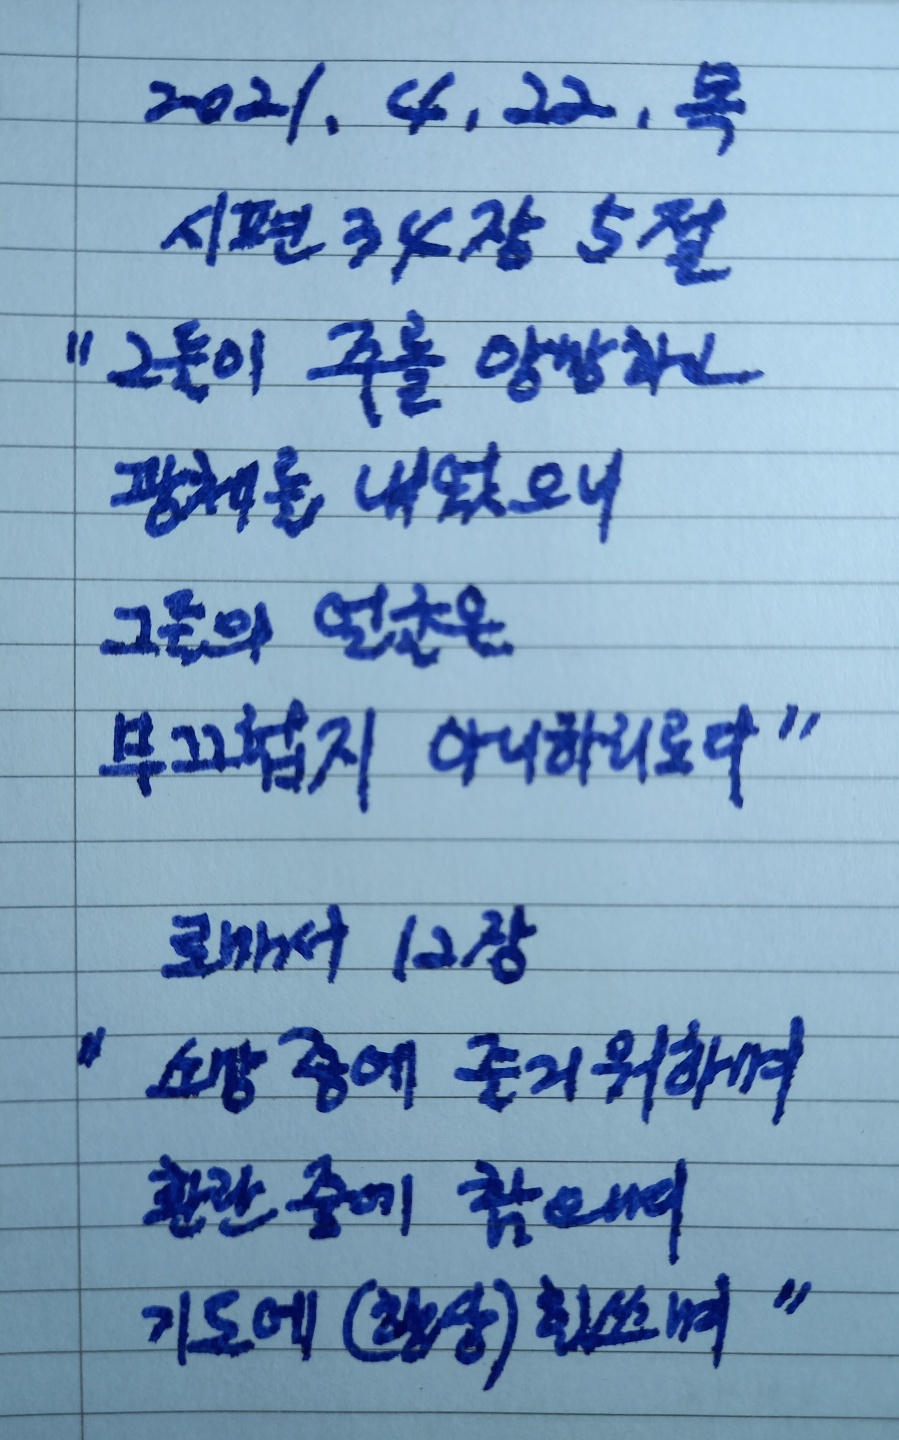 2021. 4. 22. 목
시편 34장 5절
"그들이 주를 앙망하고
광채를 내었으니
그들의 얼굴은
부끄럽지 아니하리로다"
로마서 12장
"소망 중에 즐거워하며
환란 중에 참으며
기도에 (항상) 힘쓰며"